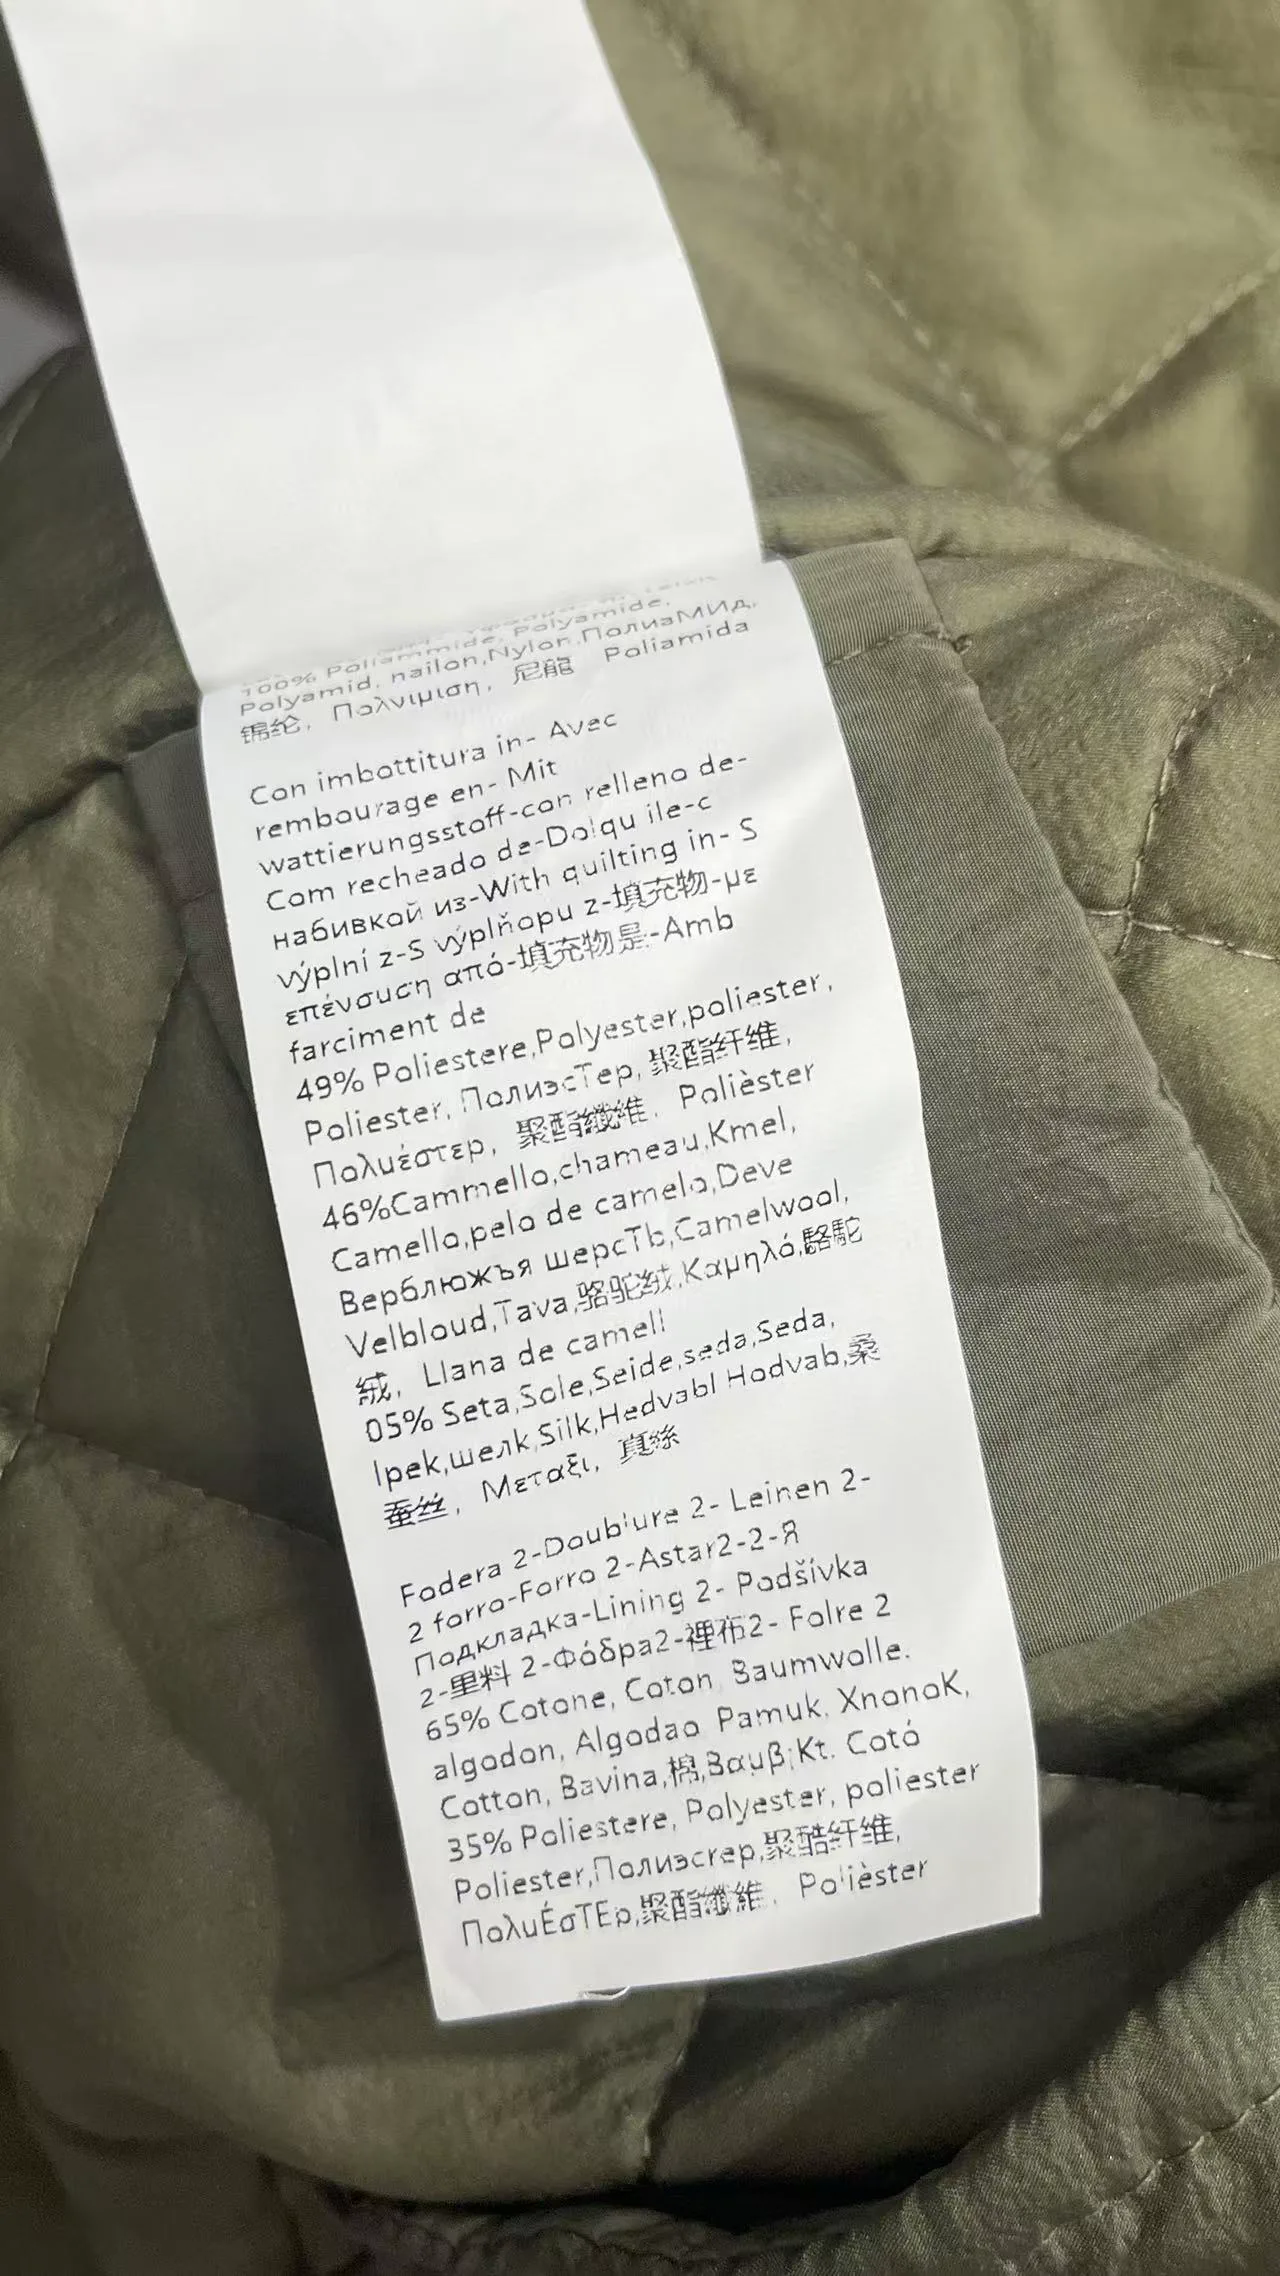 100% Poliammide, Polyamide,
Polyamid, nailon,Nylon,ПолиаМИд,
锦纶, Πολνιμιση, 尼龍 Poliamida
Con imbottitura in- Avec
rembourage en- Mit
wattierungsstoff-con relleno de-
Com recheado de-Dolqu ile-c
набивкой из-With quilting in- S
výplní z-S výplňopu z-填充物-με
επένσυση από-填充物是-Amb
farciment de
49% Poliestere,Polyester,poliester,
Poliester, ПолиэсТер, 聚酯纤维,
Πολυέστερ, 聚酯纖維, Polièster
46%Cammello,chameau,Kmel,
Camello,pelo de camelo,Deve
Верблюжъя шерсТЬ,Camelwool,
Velbloud,Tava,骆驼绒,Καμηλό,駱駝
絨, Llana de camell
05% Seta,Sole,Seide,seda,Seda,
Ipek,шелк,Silk,Hedvabl Hodvab,桑
蚕丝, Μεταξι, 真絲
Fodera 2-Doublure 2- Leinen 2-
2 forro-Forro 2-Astar2-2-Я
подкладка-Lining 2- Podšívka
2-里料 2-Φόδρα2-裡布2- Folre 2
65% Cotone, Coton, Baumwolle.
algodon, Algodao Pamuk, XnonoK,
Cotton, Bavina,棉,Βαμβ;Kt. Cotó
35% Poliestere, Polyester, poliester
Poliester,Полиэсrер,聚酯纤维,
ΠολυÉσΤΕρ,聚酯纖維, Polièster